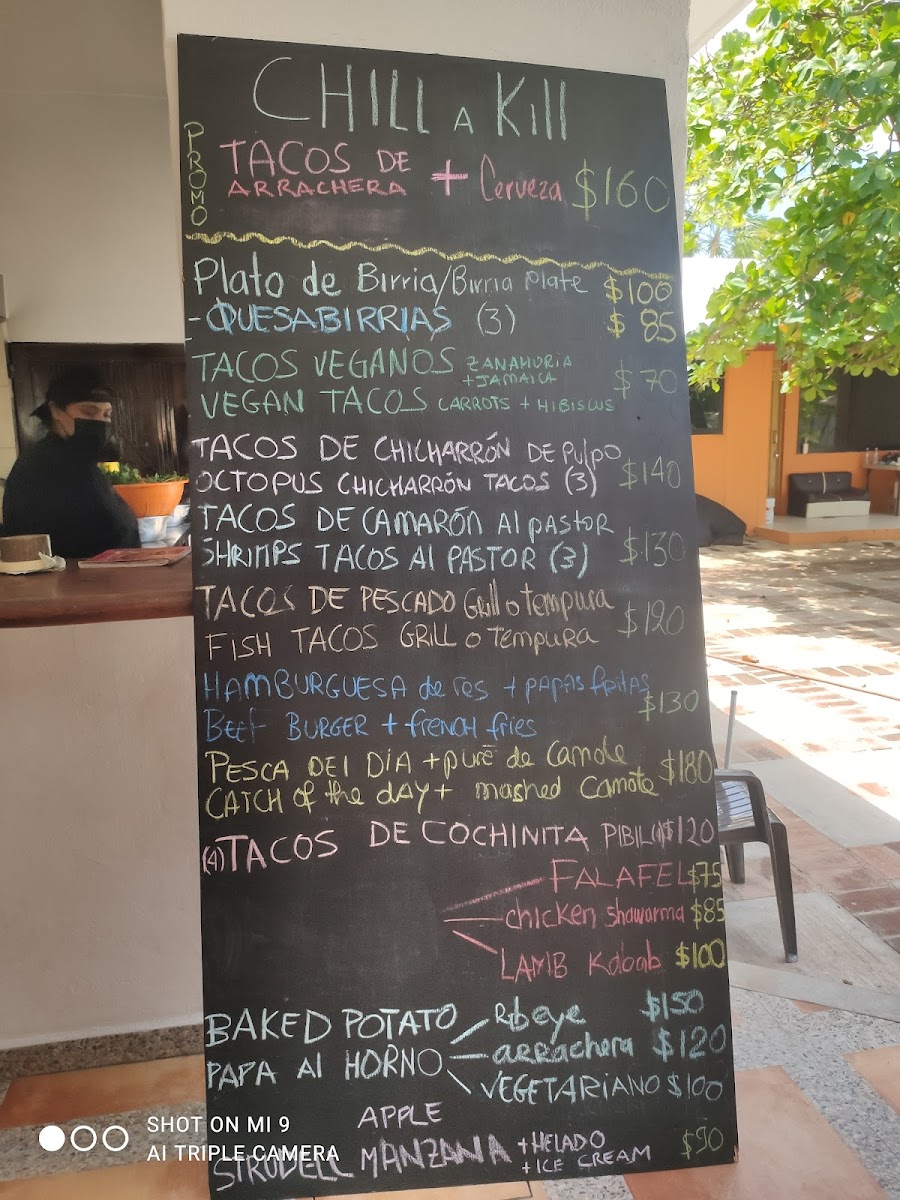 CHILL A Kill
PROMO
TACOS DE
ARRACHERA + Cerveza $160
Plato de Birria/Birria plate $100
- QUESABIRRIAS (3) $85
TACOS VEGANOS ZANAHORIA
+ JAMAICA $70
VEGAN TACOS CARROTS + HIBISCUS
TACOS DE CHICHARRÓN DE PULPO
OCTOPUS CHICHARRÓN TACOS (3) $140
TACOS DE CAMARÓN Al pastor
SHRIMPS TACOS Al PASTOR (3) $130
TACOS DE PESCADO Grill o tempura
FISH TACOS GRILL o tempura $120
HAMBURGUESA de res + papas fritas
$130
Beef BURGER + french fries
PESCA DEl DÍA + puré de Camote $180
CATCH of the DAY + mashed Camote
(4) TACOS DE COCHINITA PIBIL $120
FALAFEL $75
chicken shawarma $85
LAMB Kabab $100
BAKED POTATO Ribeye $150
PAPA Al HORNO arrachera $120
VEGETARIANO $100
APPLE
STRUDELL MANZANA + HELADO $90
+ ICE CREAM
SHOT ON MI 9
AI TRIPLE CAMERA